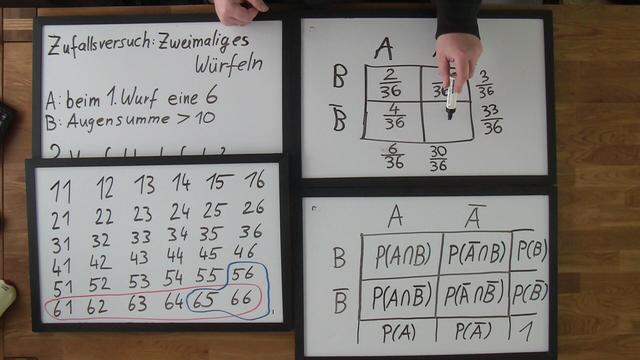 Zufallsversuch: Zweimaliges
Würfeln
A: beim 1. Wurf eine 6
B: Augensumme > 10
11 12 13 14 15 16
21 22 23 24 25 26
31 32 33 34 35 36
41 42 43 44 45 46
51 52 53 54 55 56
61 62 63 64 65 66
A
B 2/36 /36 3/36
B̅ 4/36 33/36
6/36 30/36
A A̅
B P(A∩B) P(A̅∩B) P(B)
B̅ P(A∩B̅) P(A̅∩B̅) P(B̅)
P(A) P(A̅) 1